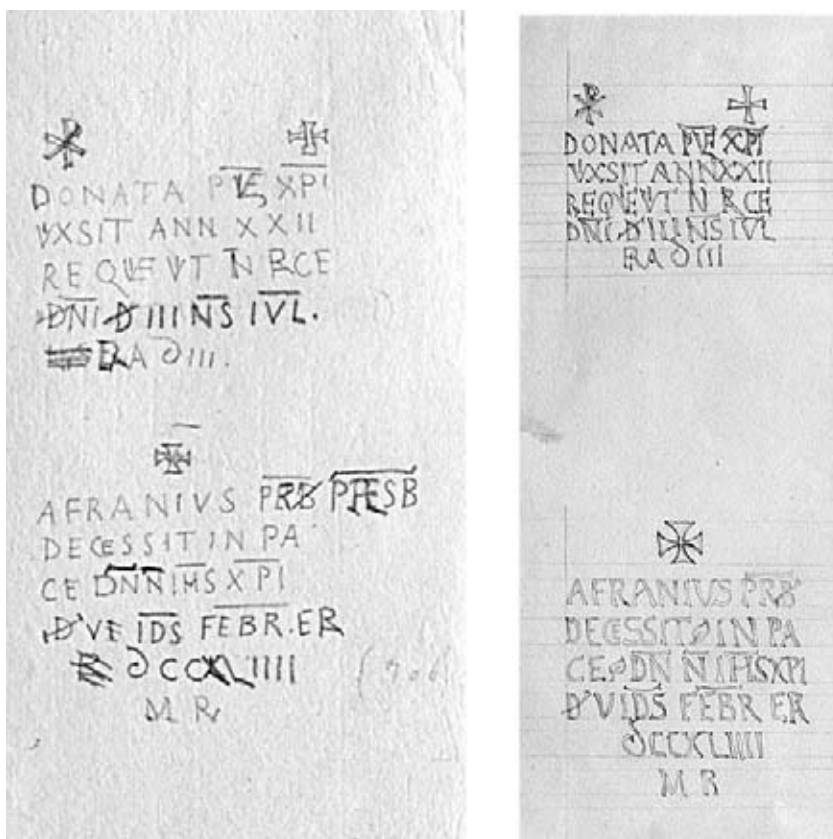 DONATA PVE XPI
VXSIT ANN XXII
REQVEVT N RCE
DNI D III NS IVL.
ERA Ꟈ III.
AFRANIVS PRB PRESB
DECESSIT IN PA
CE DNNIHSXPI
D VE IDS FEBR. ER
CCXLIIII
M R
DONATA PVE XPI
VXSIT ANNXXII
REQVEVT N RCE
DNI D III NS IVL
RA III
AFRANIVS PRB
DECESSIT IN PA
CE DN NIHSXPI
D V IDS FEBR ER
CCXLIIII
M R